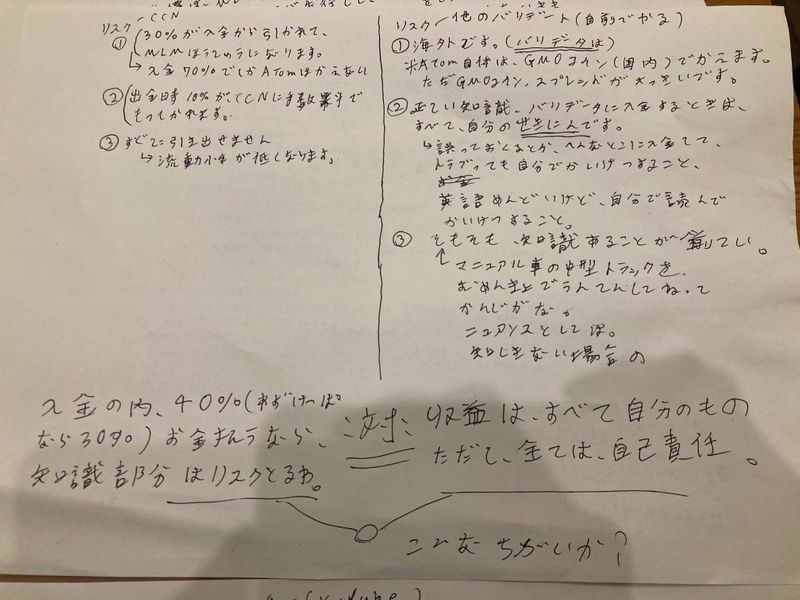 リスク／CCN
① 30%が入金から引かれて、
MLMほうしゅうになります。
↳ 入金70%でしかAtomはかえない
② 出金時10%が、CCNに手数料で
もってかれます。
③ すぐに引き出せません
↳ 流動小生が低くなります。
リスク／他のバリデート(自前でやる)
① 海外です。(バリデータは)
Atom自体は、GMOコイン(国内)でかえます。
ただGMOコイン、スプレッドが大っきいです。
② 正しい知識、バリデータに入金するときは、
すべて、自分のせきにんです。
↳ 誤っておくるとか、へんなとこに入金して、
トラブっても自分でかいけつすること、
英語めんどいけど、自分で読んで
かいけつすること。
③ そもそも 知識あることが前てい。
マニュアル車の中型トラックを、
むめんきょでうんてんしてねって
かんじかな。
ニュアンスとしては。
知しきない場合の
入金の内、40%(ねおけっぱ
なら30%)お金はらうなら、
知識部分はリスクとるわ。
対: 収益は、すべて自分のもの
ただし、全ては、自己責任。
こんなちがいか?